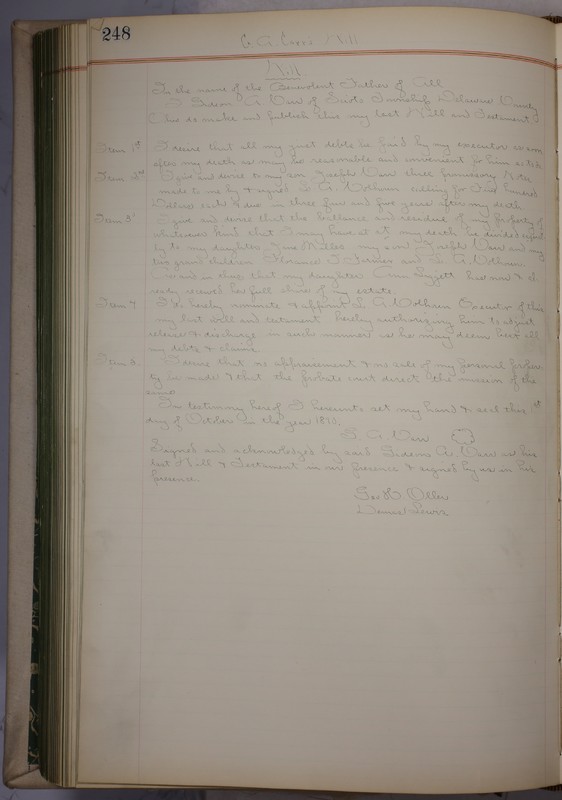 248
Will
Will
In the name of the Benevolent Father of All
I A. of Scioto Township Delaware County
Ohio do make and publish this my last Will and Testament
Item 1st I desire that all my just debts be paid by my executor as soon
after my death as may be reasonable and convenient for him as to be
Item 2nd I give and devise to my son Joseph three promissory Notes
made to me by & signed A. calling for Five hundred
Dollars each & due in three four and five years after my death
Item 3 I give and devise that the ballance and residue of my property of
whatsoever kind that I may have at my death be divided equal
ly to my daughter Jane my son Joseph and my
two grand children Florence J. and A.
and in that my daughter Ann has now & al
ready received her full share of my estate
Item 4 I do hereby nominate & appoint A. Executor of this
my last will and testament hereby authorizing him to adjust
release & discharge in such manner as he may deem best all
my debts & claims
Item 5. I desire that no appraisement & no sale of my personal proper
ty be made & that the probate court direct the omission of the
same
In testimony hereof I hereunto set my hand & seal this 1st
day of October in the year 1870.
A.
Signed and acknowledged by said A. as his
last Will & Testament in our presence & signed by us in his
presence
Geo W.
Lewis